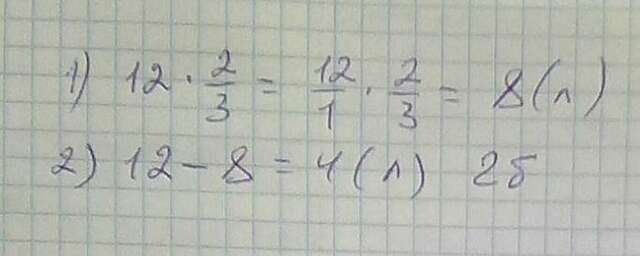 1) 12 · 2/3 = 12/1 · 2/3 = 8 (л)
2) 12 - 8 = 4 (л) 2б